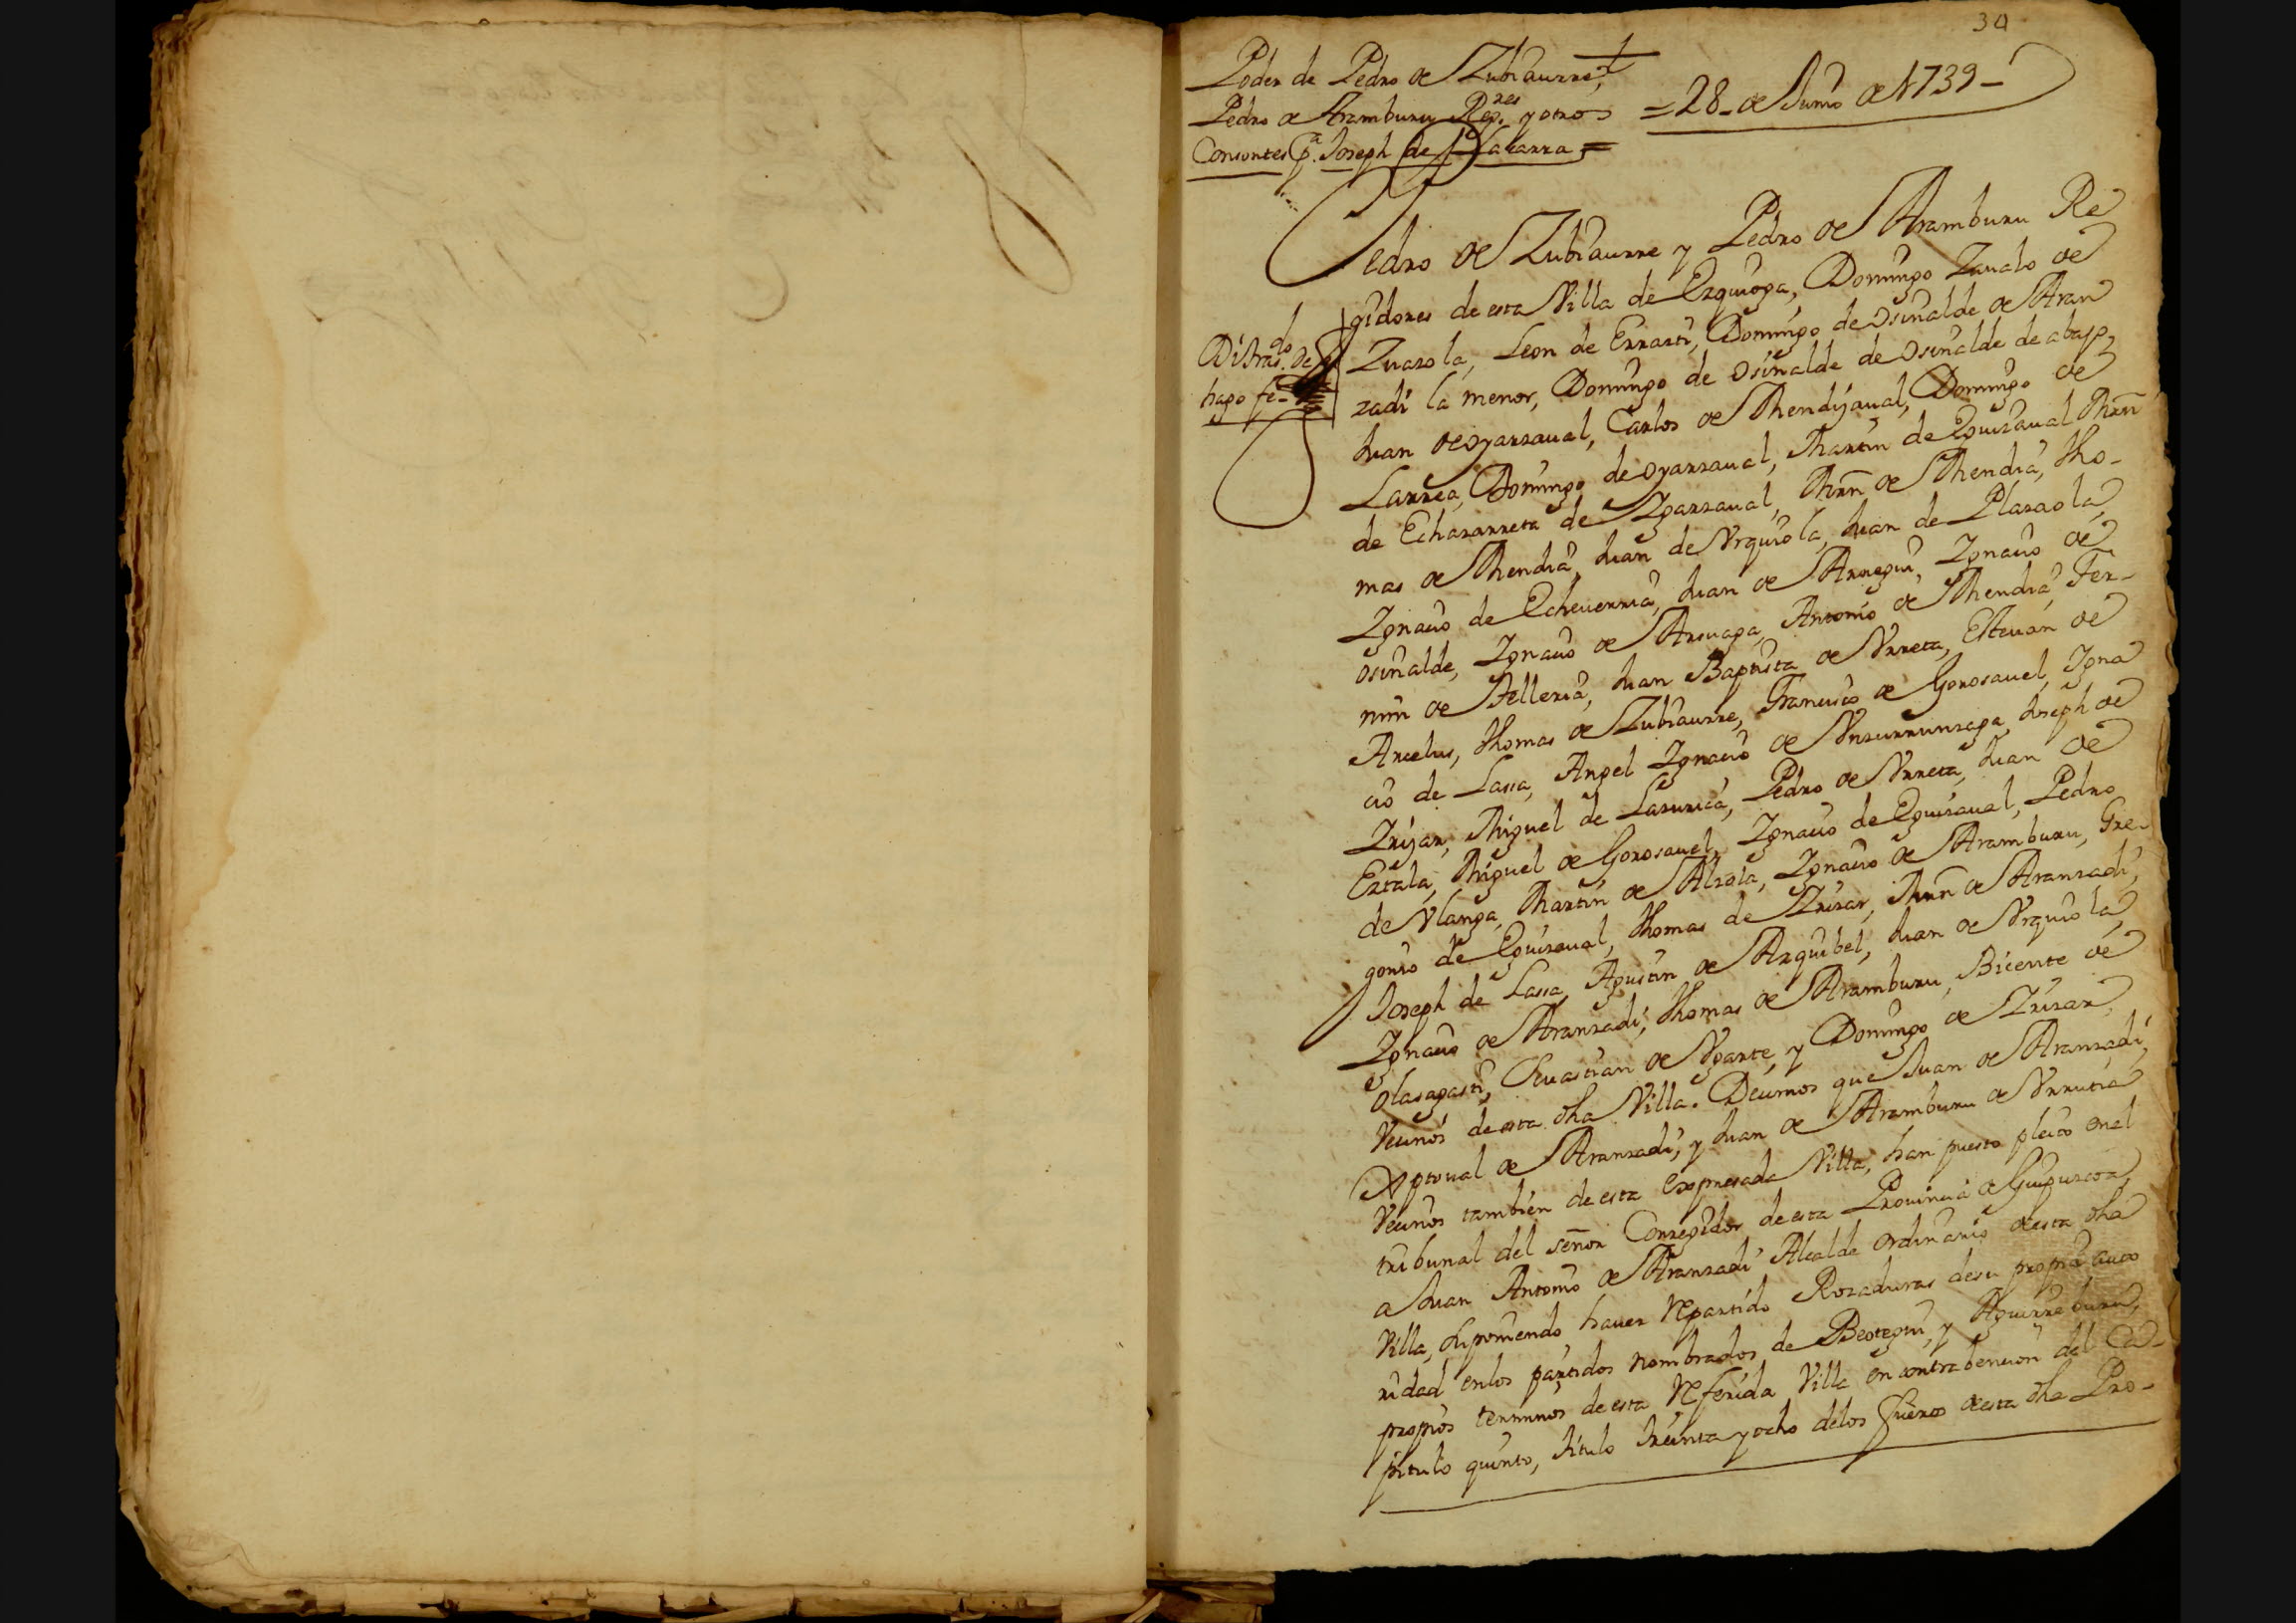 34
Poder de Pedro de Zubiaurre,
Pedro de Aramburu Reg.res y otros
Consortes p.a Joseph de Lazarra =
= 28 - de Junio de 1739 -
Pedro de Zubiaurre y Pedro de Aramburu Re
gidores de esta Villa de Ezquioga, Domingo Zavalo de
Zuazola, Leon de Errasti, Domingo de Osinalde de Aran
zadi la menor, Domingo de Osinalde de Osinalde de abajo,
Juan de Oyarzaual, Carlos de Mendijaual, Domingo de
Larrea, Domingo de Oyarzaual, Martin de Eguizaual Mrñ
de Echazarreta de Ygarzaual, Mrñ de Mendia, Tho-
mas de Mendia, Juan de Vrquiola, Juan de Plazaola,
Ygnacio de Echeuerria, Juan de Arregui, Ygnacio de
Osinalde, Ygnacio de Aruaga, Antonio de Mendia, Fer-
min de Telleria, Juan Baptista de Vrreta, Esteuan de
Arcelus, Thomas de Zubiaurre, Francisco de Gorosauel, Igna
cio de Lassa, Angel Ygnacio de Ynzurrunzaga, Joseph de
Yrijar, Miguel de Lasurica, Pedro de Vrreta, Juan de
Eztala, Miguel de Gorosauel, Ygnacio de Eguizaual, Pedro
de Vlanga, Martin de Alzola, Ygnacio de Aramburu, Gre-
gorio de Eguizaual, Thomas de Yrizar, Mrñ de Aranzadi,
Joseph de Lassa, Agustin de Arquibel, Juan de Vrquiola,
Ygnacio de Aranzadi, Thomas de Aramburu, Bicente de
Olasagasti, Seuastian de Vgarte, y Domingo de Yrizar,
Vecinos de esta dha Villa. Decimos que Juan de Aranzadi,
Xptoual de Aranzadi, y Juan de Aramburu de Vrrutia
Vecinos tambien de esta expresada Villa, han puesto pleito en el
tribunal del señor Corregidor de esta Prouincia de Guipuzcoa,
a Juan Antonio de Aranzadi Alcalde ordinario de esta dha
Villa, suponiendo hauer repartido Rozaduras de su propia auto
ridad en los partidos nombrados de Beotegui, y Aguirre buru,
propios terminos de esta referida Villa en contrabencion del Ca-
pitulo quinto, titulo treinta y ocho de los fueros de esta dha Pro-
Di tras.do de q.e
hago fe -